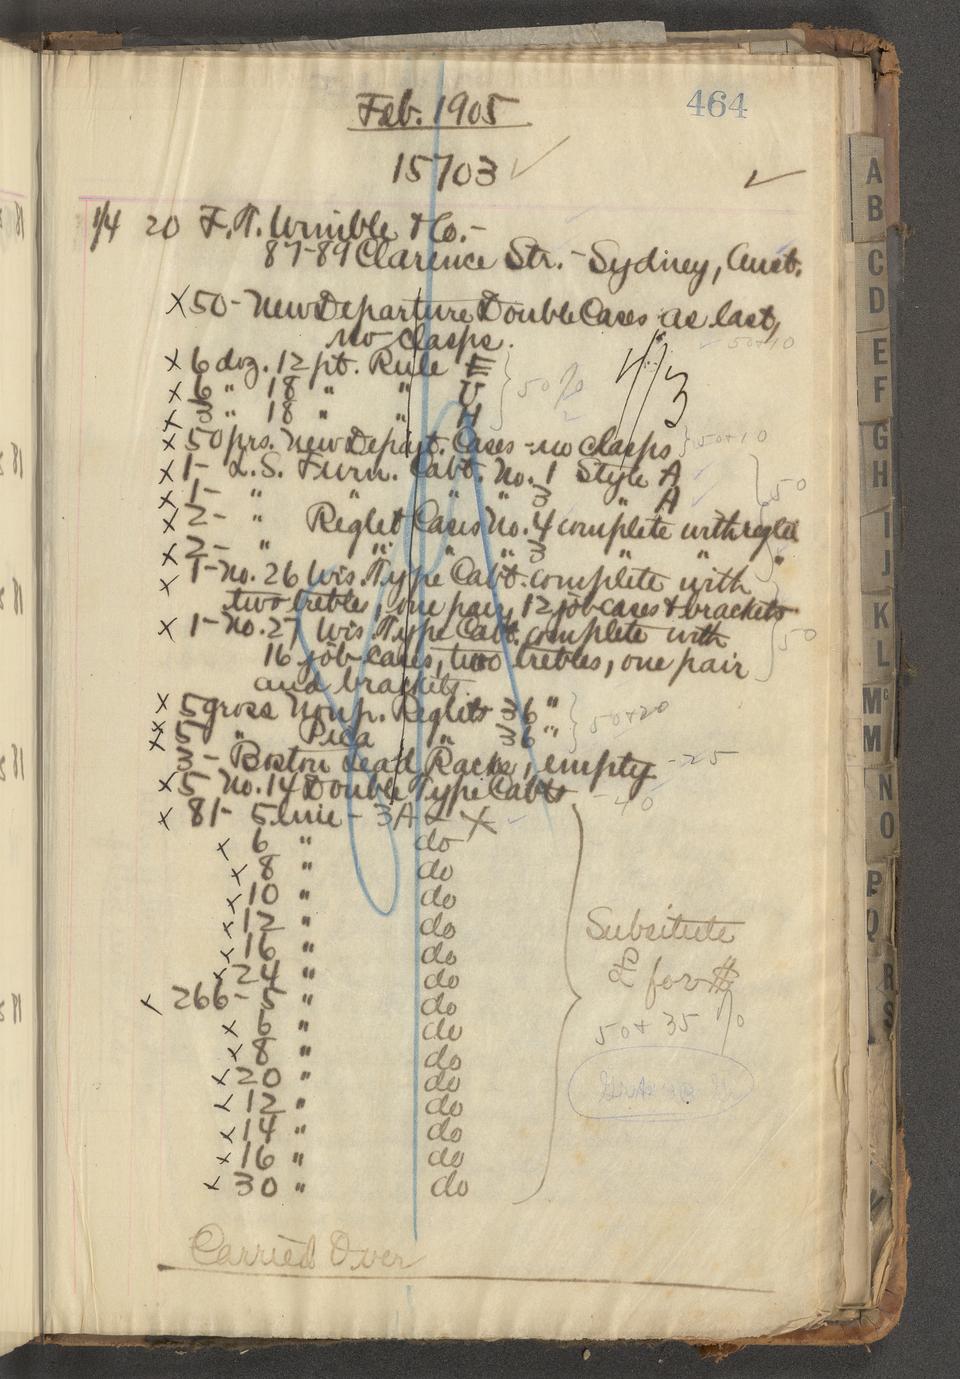 464
Feb. 1905
15703 ✓
1/4 20 F.T. Wimble & Co. -
87-89 Clarence Str. - Sydney, Aust.
X 50 - New Departure Double Cases as last,
no clasps. 50+10
X 6 doz. 12 pt. Rule E
X 6 " 18 " " U 50%
X 3 " 18 " " H 4/3
X 50 prs. New Depart. Cases - no clasps 50+10
X 1 - L.S. Furn. Cabt. No. 1 Style A
X 1 - " " " " 3 " A 50
X 2 - " Reglet Cases No. 4 complete with reglet
X 2 - " " " " 3 " " "
X 1 - No. 26 Wis. Type Cabt. complete with
two trebles, one pair, 12 job cases & brackets
X 1 - No. 27 Wis. Type Cabt. complete with 50
16 job cases, two trebles, one pair
and brackets.
X 5 gross Nonp. Reglets 36"
X 5 " Pica " 36" 50+20
X 3 - Boston Lead Racks, empty - 25
X 5 - No. 14 Double Type Cabts - 40
X 81 - 5 line - 3A - X
X 6 " do
X 8 " do
X 10 " do
X 12 " do
X 16 " do
X 24 " do
X 266 - 5 " do
X 6 " do
X 8 " do
X 20 " do
X 12 " do
X 14 " do
X 16 " do
X 30 " do
Subsitute
for
50+35 %
Carried Over
A
B
C
D
E
F
G
H
I
J
K
L
Mc
M
N
O
P
Q
R
S